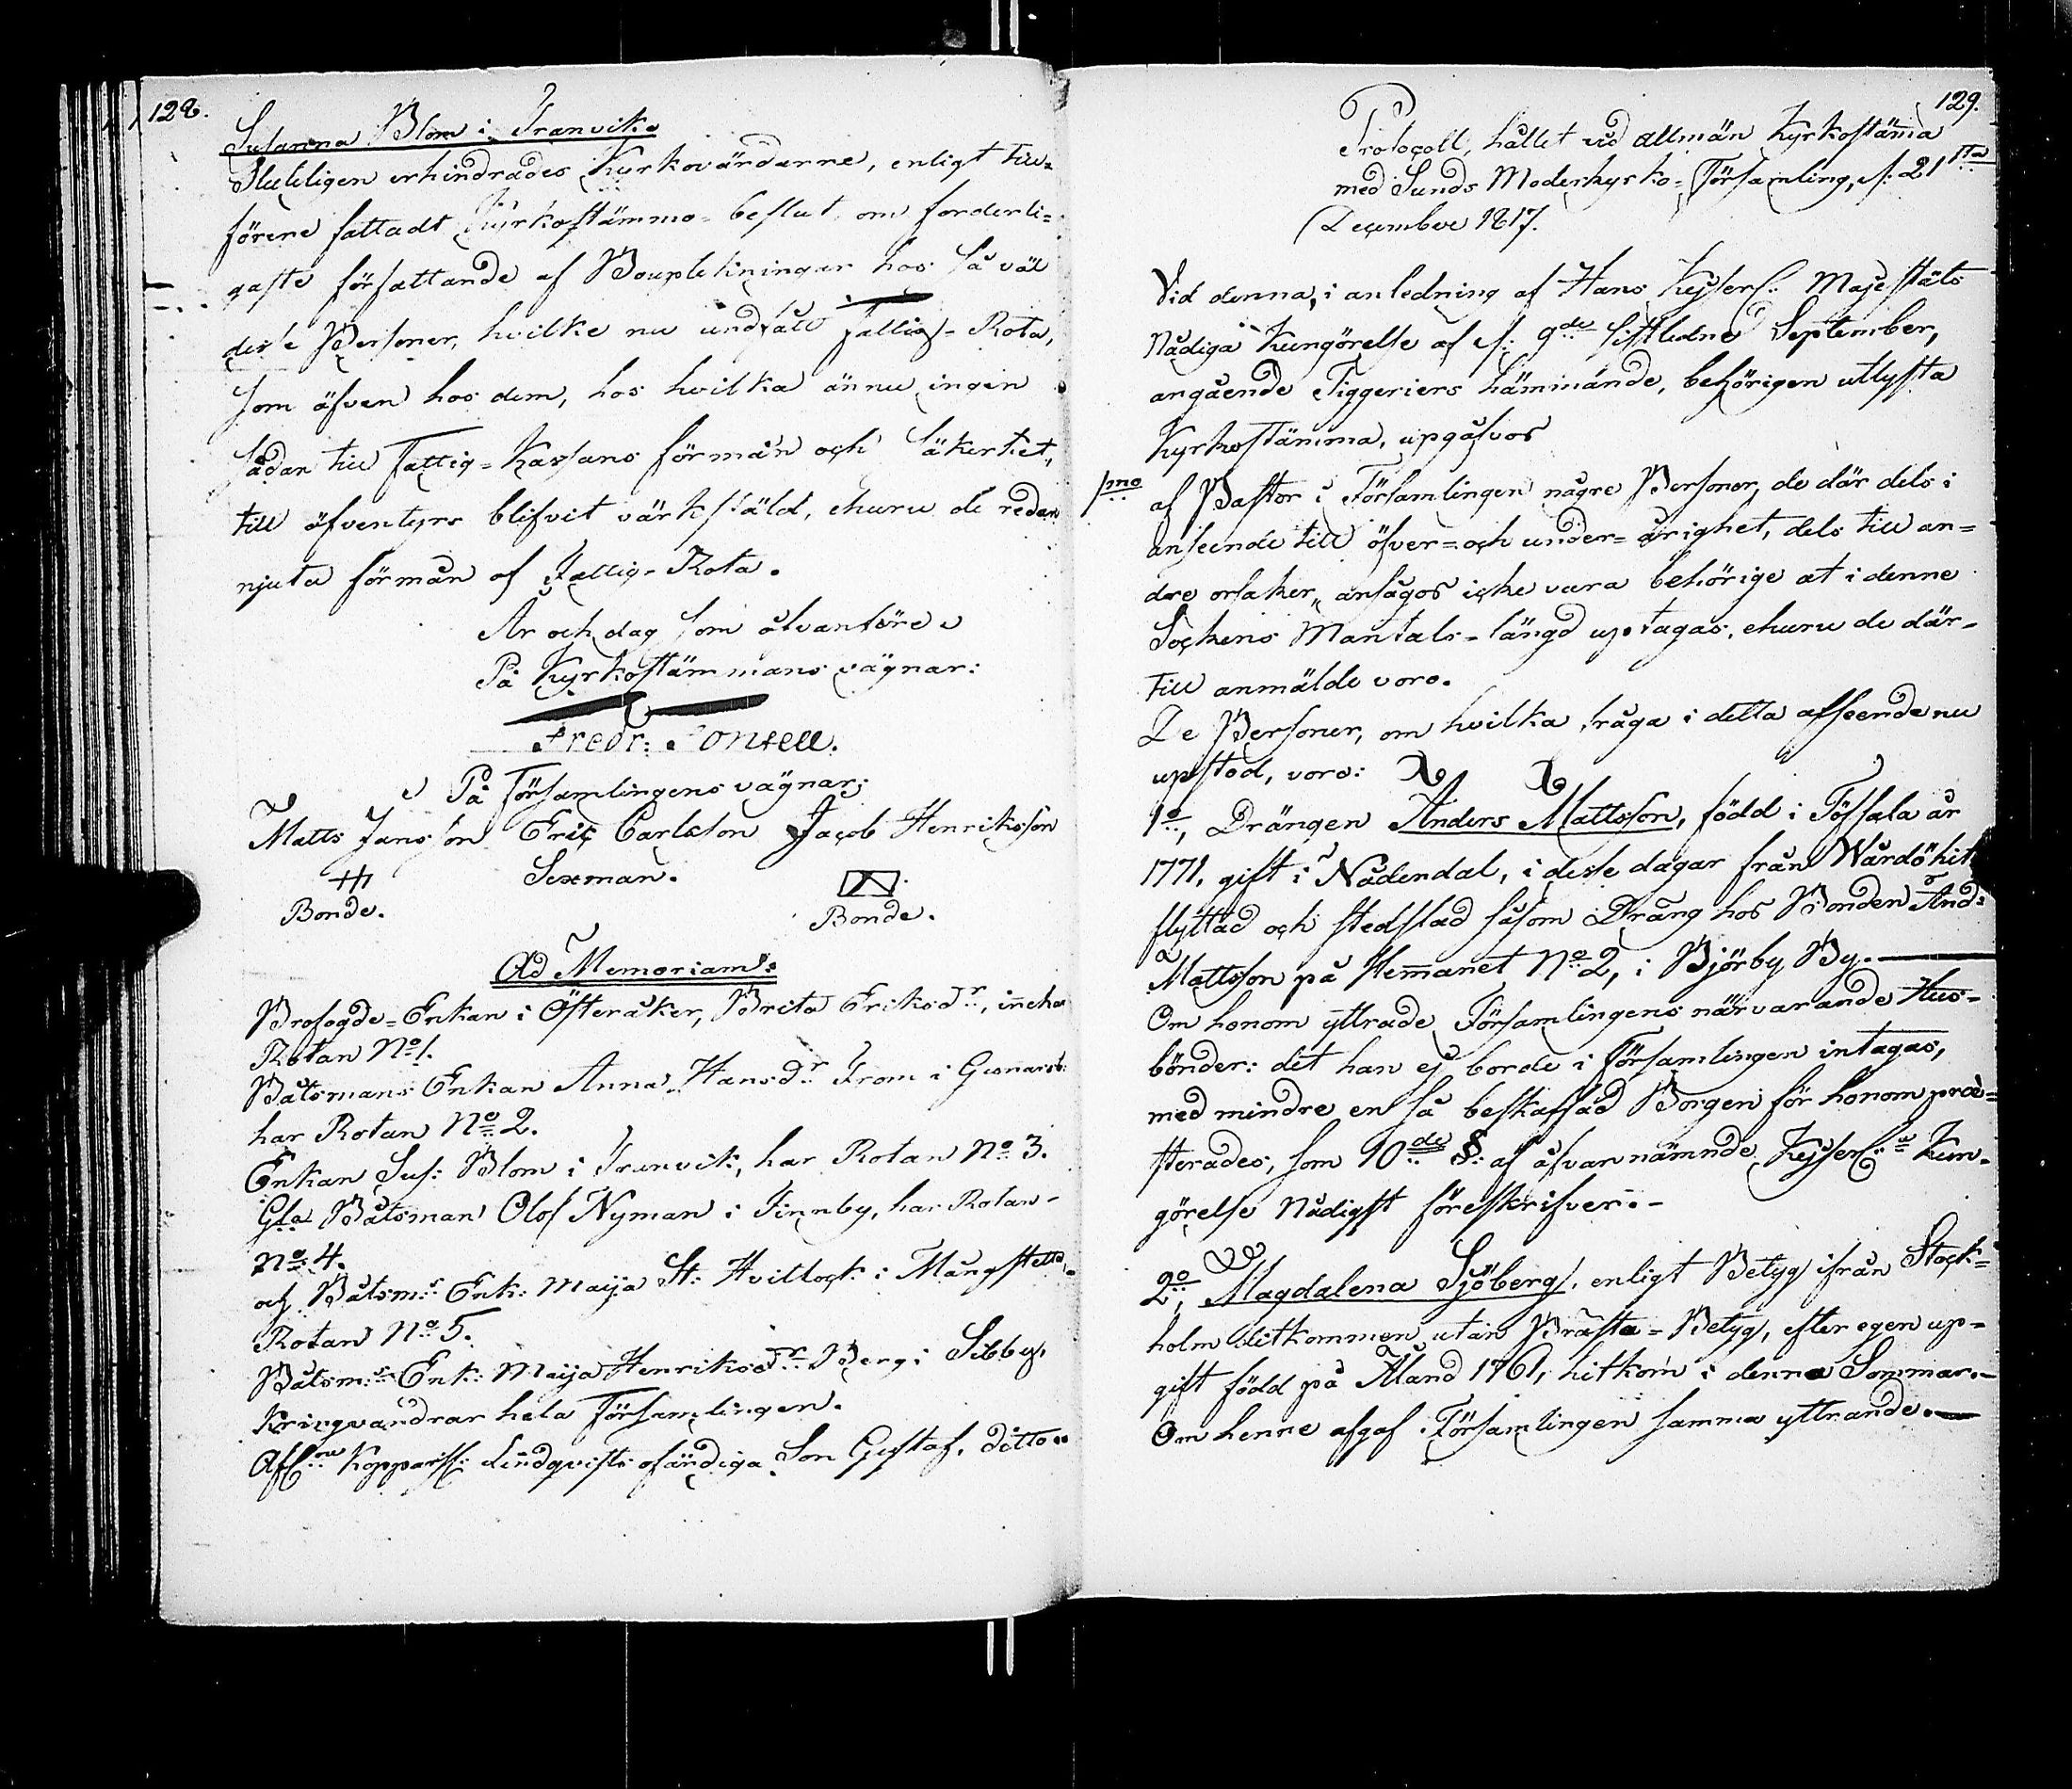 128.
Susanna Blom i Tranvik.
Sluteligen erhindrades Kyrkovärdarne, enligt till=
förene fattadt Kyrkostämmo=beslut om forderli=
gaste författande af Boupteckningar hos så väl
desse Personer, hvilke nu undfått Fattig-Rota,
som äfven hos dem, hos hvilka ännu ingen
sådan till Fattig=Kassans förmån och säkerhet,
till äfventyrs blifvit värkstäld, ehuru de redan
njuta förmån af Fattig-Rota.
År och dag som åfvanföre
På Kyrkostämmans vägnar:
Fredr: Pontell.
På Församlingens vägnar;
Matts Jansson Eric Carlsson Jacob Henriksson
Sexman.
Bonde. Bonde.
Ad Memoriam:
Profogde=Enkan i Österåker, Brita Eriksdr, innehar
Rotan No 1.
Båtsmans Enkan Anna Hansdr From i Gunnarsb:
har Rotan No 2.
Enkan Sus: Blom i Tranvik, har Rotan No 3.
Gla Båtsman Olof Nyman i Finnby, har Rotan
No 4.
och Båtsm:s Enk: Maija St: Hvitlock i Mångstekta,
Rotan No 5.
Båtsm:s Enk: Maija Henriksdr Berg i Sibby,
kringvandrar hela Församlingen.
Afl:ne Kopparsl: Lindqvists ofärdiga Son Gustaf, ditto
129.
Protocoll, hållet vid allmän Kyrkostämma
med Sunds Moderkyrko=Församling, d: 21sta
December 1817.
Vid denna, i anledning af Hans Kejserl: Majestäts
Nådiga Kungörelse af d: 9de sistledne September,
angående Tiggeriers hämmande, behörigen utlysta
Kyrkostämma, upgåfvos
1mo af Pastor i Församlingen någre Personer, de där dels i
anseende till öfver=och under=årighet, dels till an=
dre orsaker, ansågos icke vara behörige at i denne
Sockens Mantals-längd uptagas, ehuru de där-
till anmälde voro.
De Personer, om hvilka fråga i detta afseende nu
upstod, voro:
1o, Drängen Anders Mattsson, född i Töfsala år
1771, gift i Nådendal, i desse dagar från Wårdö hit
flyttad och stedslad såsom Dräng hos Bonden And:
Mattsson på Hemmanet No 2, i Björby By.
Om honom yttrade Församlingens närvarande Hus-
bönder: det han ej borde i Församlingen intagas,
med mindre en så beskaffad Borgen för honom præ=
sterades, som 10de §: af åfvannämnde Kejserl:a Kun-
görelse Nådigst föreskrifver.-
2o, Magdalena Sjöberg, enligt Betyg ifrån Stock=
holm ditkommen utan Prästa=Betyg, efter egen up=
gift född på Åland 1761, hitkom i denna Sommar.-
Om henne afgaf Församlingen samma yttrande.